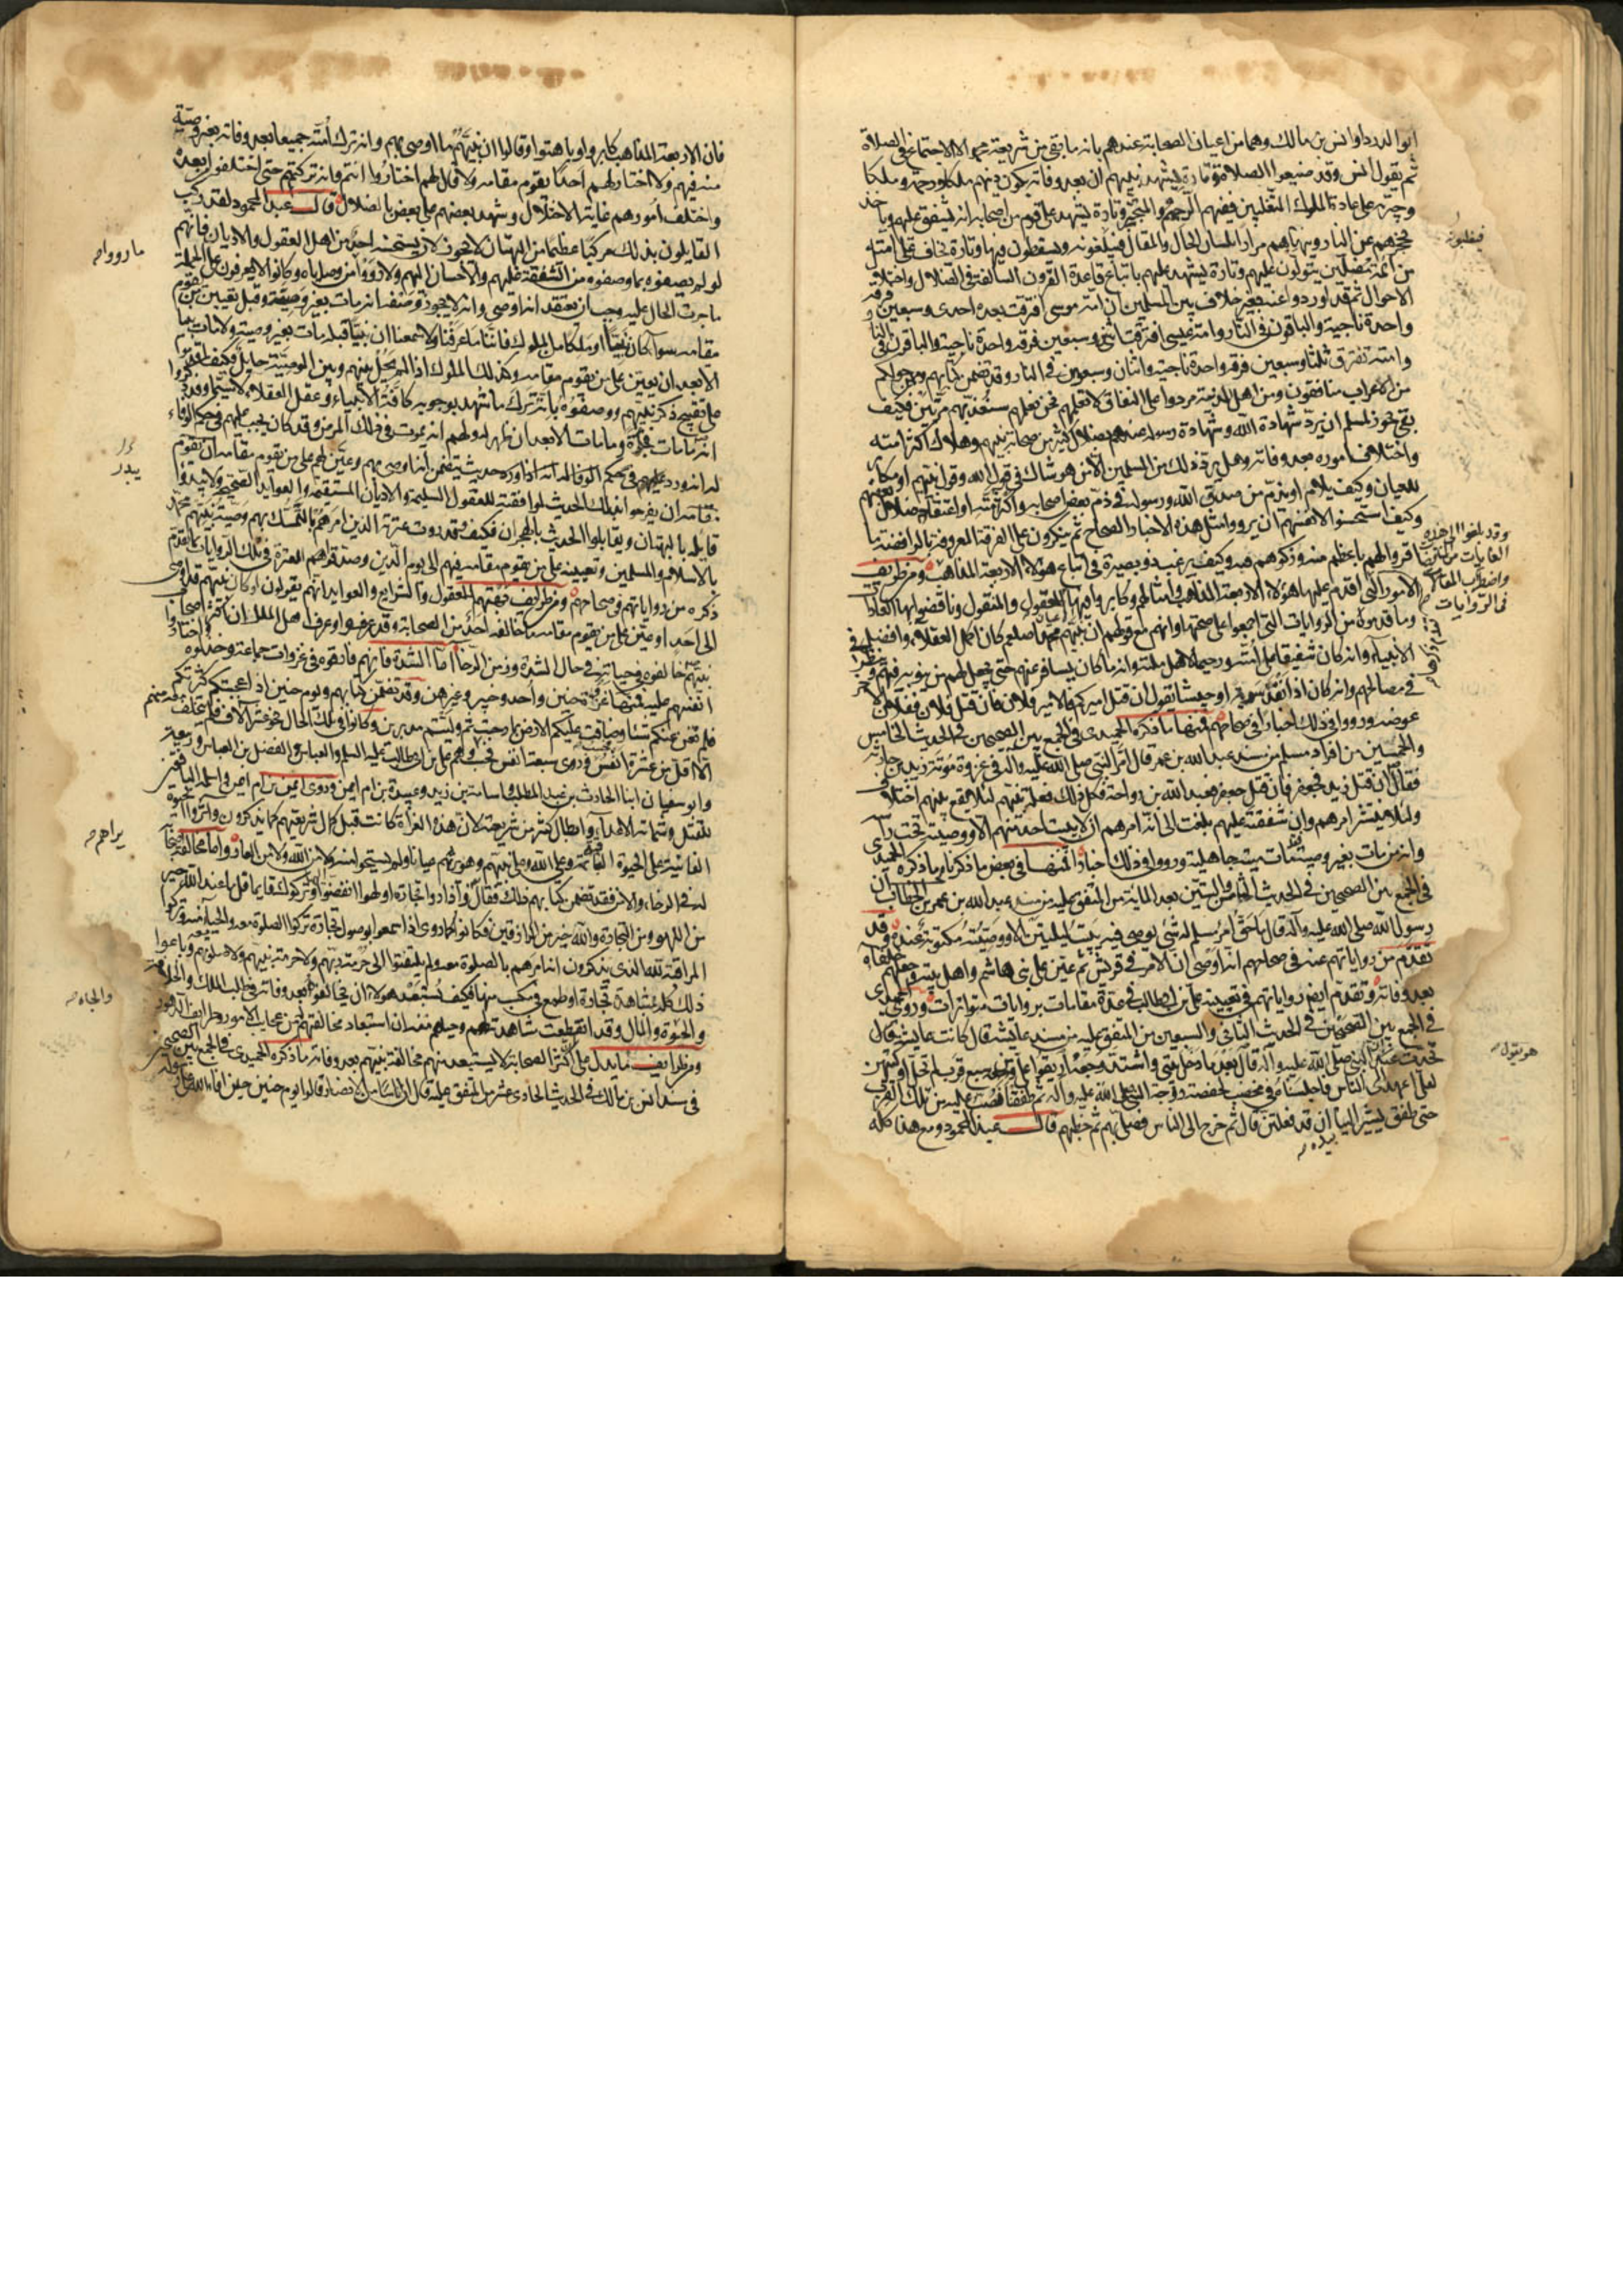 ابو الدرداء وانس بن مالك وهما من اعيان الصحابة عندهم بانه ما بقي من شريعة محمد الا الاجتماع في الصلاة
ثم يقول انس وقد ضيعوا الصلاة وتارة يشهد نبيهم ان بعد وفاته يكون دينهم ملكا ورحمة وملكا
وجبرية على عادة الملوك المتغلبين فيهم الرحمة والتجبر وتارة يشهد على قوم من اصحابه انه يشفق عليهم وياخذ
بحجزهم عن النار وينهاهم مرارا بلسان الحال والمقال فيغلبونه ويسقطون فيها وتارة يخاف على امته
من ائمة مضلين يتولون عليهم وتارة يشهد عليهم باتباع قاعدة القرون السالفة في الضلال واختلال
الاحوال ثم قد اوردوا عنه بغير خلاف بين المسلمين ان امة موسى افترقت بعده احدى وسبعين فرقة
واحدة ناجية والباقون في النار وامة عيسى افترقت اثنى وسبعين فرقة واحدة ناجية والباقون في النار
وامته تفترق ثلثا وسبعين فرقة واحدة ناجية واثنان وسبعون في النار وقد تضمن كتابهم وممن حولكم
من الاعراب منافقون ومن اهل المدينة مردوا على النفاق لا تعلمهم نحن نعلمهم سنعذبهم مرتين فكيف
يقع يجوز لمسلم ان يرد شهادة الله وشهادة رسوله عندهم بضلال كثير من صحابة نبيهم وهلاك اكثر امته
واختلال اموره بعد وفاته وهل يرد ذلك من المسلمين الا من هو شاك في قول الله وقول نبيهم او مكابر
للعيان وكيف يلام او يذم من صدق الله ورسوله في ذم بعض اصحابه واكثر امته او اعتقاد ضلال بعضهم
وكيف استحسنوا لانفسهم ان يرووا مثل هذه الاخبار الصحاح ثم ينكرون على الفرقة المعروفة بالرافضة ما
اقروا لهم باعظم منه وذكروهم به وكيف يرغب ذو بصيرة في اتباع هؤلاء الاربعة المذاهب ومن طريف
الامور التي اقدم عليها هؤلاء الاربعة المذاهب وامثالهم وكابروا فيها المعقول والمنقول وناقضوا بها العادات
وما قدموه من الروايات التي اجمعوا على صحتها وانهم مع قولهم ان نبيهم محمدا صلعم كان اكمل العقلاء وافضل
الانبياء وانه كان شفيقا على امته رحيما لاهل ملته وانه ما كان يسافر عنهم حتى يجعل لهم من ينوبه فيهم وينظر
في مصالحهم وانه كان اذا انفذ سرية او جيشا يقول ان قتل اميركم فالامير فلان فان قتل فلان ففلان
عوضه ورووا في ذلك اخبارا في صحاحهم فمنها ما ذكره الحميدي في الجمع بين الصحيحين في الحديث الخامس
والخمسين من افراد مسلم من مسند عبد الله بن عمر قال امر النبي صلى الله عليه وآله في غزوة مؤتة زيد بن حارثة
فقال ان قتل زيد فجعفر فان قتل جعفر فعبد الله بن رواحة فكل ذلك فعله نبيهم لئلا يقع بينهم اختلاف
ولئلا ينتشر امرهم وان شفقته عليهم بلغت الى انه امرهم ان لا يبيت احد منهم الا ووصيته تحت راسه
وانه من مات بغير وصية مات ميتة جاهلية ورووا في ذلك اخبارا فمنها في بعض ما ذكرناه ما ذكره الحميدي
في الجمع بين الصحيحين في الحديث الثامن والستين بعد المائة من المتفق عليه من مسند عبد الله بن عمر بن الخطاب ان
رسول الله صلى الله عليه وآله قال ما حق امرئ مسلم له شئ يوصى فيه يبيت ليلتين الا ووصيته مكتوبة عنده وقد
تقدم من رواياتهم عنه في صحاحهم انه اوصى ان الامر في قريش ثم عين على بني هاشم واهل بيته وجعلهم خلفاءه
بعد وفاته وتقدم ايضا رواياتهم في تعيينه على علي بن ابي طالب في عدة مقامات بروايات متواترات وروى الحميدي
في الجمع بين الصحيحين في الحديث الثاني والسبعين من المتفق عليه من مسند عائشة قال كانت عائشة
تحدث عن النبي صلى الله عليه وآله قال بعد ما دخل بيتي واشتد وجعه اريقوا علي من سبع قرب لم تحلل اوكيتهن
لعلي اعهد الى الناس فاجلسناه في مخضب لحفصة زوجة النبي صلى الله عليه وآله ثم طفقنا نصب عليه من تلك القرب
حتى طفق يشير الينا ان قد فعلتن قال ثم خرج الى الناس فصلى بهم ثم خطبهم قال عبد المحمود ومع هذا كله
بيده
فيغلبونه
وقد بلغوا الى هذه
الغايات من
واضطراب المقال
في الروايات
هو يقول
فان الاربعة المذاهب كابروا وباهتوا وقالوا ان نبيهم ما اوصى بهم وانه ترك امته جميعا بعد وفاته بغير وصية
منه فيهم ولا اختار لهم احدا يقوم مقامه ولا قال لهم اختاروا انتم وانه تركهم حتى اختلفوا بعده
واختلف امورهم غاية الاختلال وشهد بعضهم على بعض بالضلال قال عبد المحمود لقد ركب
القايلون بذلك مركبا عظيما من البهتان لا يجوز ان يستحسنه احد من اهل العقول والاديان فانهم
لو لم يصفوه بما وصفوه من الشفقة عليهم والاحسان اليهم ولا رووا من وصاياه وكانوا لا يعرفون على الجملة
ما جرت الحال عليه وجب ان يعتقد انه اوصى وانه لا يجوز وصفه انه مات بغير وصية وقبل تعيين من يقوم
مقامه سواء كان نبيا او ملكا من الملوك فاننا ما عرفنا ولا سمعنا ان نبيا قبله مات بغير وصية ولا مات
الا بعد ان يعين على من يقوم مقامه وكذلك الملوك اذا لم يحل بينهم وبين الوصية حايل فكيف اقدموا
على تقبيح ذكر نبيهم ووصفوه بانه ترك ما شهد بوجوبه كافة الانبياء وعقل العقلاء لا سيما وقد ذكروا
انه ما مات فجأة وما مات الا بعد ان ظهر له ولهم انه يموت في ذلك المرض وقد كان يجب عليهم في حكم الوفاء
له انه ورد عليهم في حكم الوفا لله انه اذا ورد حديث يتضمن انه اوصى بهم وعين لهم على من يقوم مقامه ان يقوم
مقامه ان يفرحوا بذلك الحديث لموافقته للعقول السليمة والاديان المستقيمة والعوايد الصحيحة ولا يبدوا
قايله بالبهتان ويقابلوا الحديث بالهجران فكيف وقد روت عترته الذين امرهم بالتمسك بهم وصية نبيهم محمد
بالاسلام والمسلمين وتعيينه على من يقوم مقامه فيهم الى يوم الدين وصدقوا هم العترة في تلك الروايات بما تقدم
ذكره من رواياتهم في صحاحهم ومن طرايف بهتهم للعقول والشرايع والعوايد انهم يقولون لو كان نبيهم قد اوصى
الى احد او عين على من يقوم مقامه ما خالفه احد من الصحابة وقد عرفوا وعرف اهل الملل ان كثيرا من صحابة
نبيهم خالفوه في حياته في حال الشدة وزمن الرخاء اما الشدة فانهم فارقوه في غزوات جماعة وخذلوه
انفسهم عليه فمنها غزوة حنين واحد وخيبر وغيرهن وقد تضمن كتابهم ويوم حنين اذ اعجبتكم كثرتكم
فلم تغن عنكم شيئا وضاقت عليكم الارض بما رحبت ثم وليتم مدبرين وكانوا في تلك الحال نحو عشرة آلاف فلم يتخلف معه منهم
الا اقل من عشرة انفس وروى سبعة انفس فحسب وهم علي بن ابي طالب عليه السلم والعباس والفضل بن العباس وربيعة
وابو سفيان ابنا الحارث بن عبد المطلب واسامة بن زيد وعبيدة بن ام ايمن وروى ايمن بن ام ايمن واسلمه الباقون
للقتل وشماتة الاعداء وابطال كثير من شريعته لان هذه الغزاة كانت قبل كمال شريعتهم كما يذكرون واثروا الحيوة
الفانية على الحيوة الباقية وعلى الله وعلى نبيهم وهو يراهم عيانا ولم يستحيوا منه ولا من الله ولا من العار واما مخالفة
له في الرخاء والامن فقد تضمن كتابهم ذلك فقال واذا راوا تجارة او لهوا انفضوا اليها وتركوك قايما قل ما عند الله خير
من اللهو ومن التجارة والله خير الرازقين فكانوا كما روى اذا سمعوا بوصول تجارة تركوا الصلوة معه والحياء منه وتركوا
المراقبة لله الذي يذكرون انه امرهم بالصلوة معه ولم يلتفتوا الى حرمة ربهم ولا حرمة نبيهم ولا صلوتهم وباعوا
ذلك كله بمشاهدة تجارة او طمع في مكسب منها فكيف يستبعد هؤلاء ان يخالفوه بعد وفاته في طلب الملك والخلافة
والحبوة والمال وقد انقطعت مشاهدته لهم وحياؤهم منه ان استبعاد مخالفتهم من عجايب الامور وطرايف الدهور
ومن طرايف ما يدل على ان اكثر الصحابة لا يستبعد منهم مخالفة نبيهم بعد وفاته ما ذكره الحميدي في الجمع بين الصحيحين
في مسند انس بن مالك في الحديث الحادي عشر من المتفق عليه قال ان اناسا من الانصار قالوا يوم حنين حين افاء الله على رسوله
ما رووا
يبدر
يراهم
والجاه